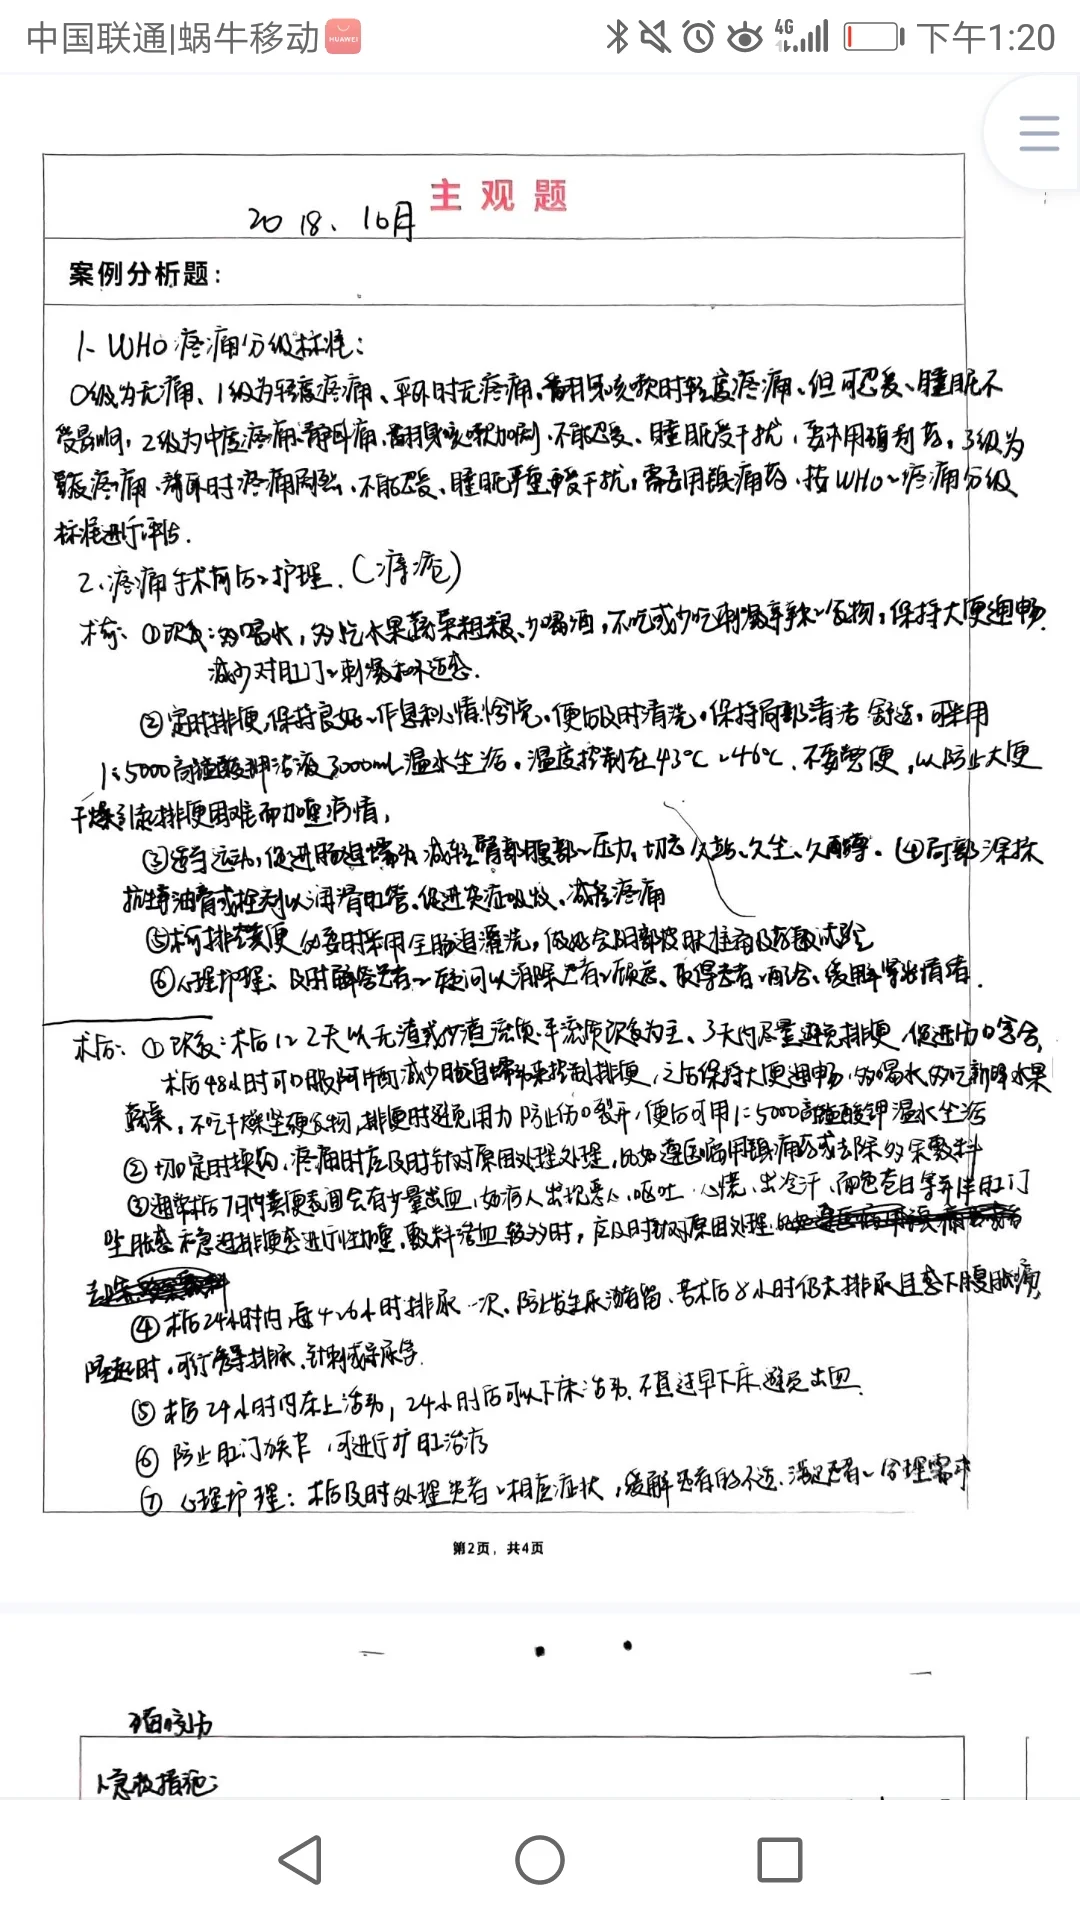 中国联通|蜗牛移动
HUAWEI
4G
下午1:20
主观题
2018、10月
案例分析题:
1、WHO疼痛分级标准:
0级为无痛、1级为轻度疼痛、平卧时无疼痛、翻身咳嗽时轻度疼痛、但可忍受、睡眠不
受影响,2级为中度疼痛、静卧痛、翻身咳嗽加剧、不能忍受、睡眠受干扰,要求用镇痛药,3级为
重度疼痛、静卧时疼痛剧烈、不能忍受、睡眠严重受干扰,需要用镇痛药、按WHO~疼痛分级
标准进行评估.
2、疼痛手术前后~护理.(痔疮)
术前:①饮食:多喝水,多吃水果蔬菜粗粮、少喝酒,不吃或少吃刺激辛辣~食物,保持大便通畅.
减少对肛门~刺激和不适感.
②定时排便,保持良好~作息和心情愉悦、便后及时清洗、保持局部清洁舒适,可采用
1:5000高锰酸钾溶液3000mL温水坐浴。温度控制在43℃~46℃、不要憋便,以防止大便
干燥引起排便困难而加重病情,
③适当运动,促进肠道蠕动,减轻臀部腹部~压力,切忌久站、久坐、久蹲、④局部涂抹
抗生油膏或栓剂以润滑肛管、促进炎症吸收、减轻疼痛
⑤术前排空粪便 必要时采用全肠道灌洗,做好会阴部皮肤准备及药敏试验
⑥心理护理:及时解答患者~疑问以消除患者~顾虑、取得患者~配合、缓解紧张情绪.
术后:①饮食:术后1~2天以无渣或少渣流质、半流质饮食为主、3天内尽量避免排便,促进伤口愈合,
术后48小时可口服阿片酊减少肠道蠕动来控制排便,之后保持大便通畅,多喝水多吃新鲜水果
蔬菜,不吃干燥坚硬食物,排便时避免用力防止伤口裂开,便后可用1:5000高锰酸钾温水坐浴
②切口定时换药,疼痛时应及时针对原因处理处理,比如遵医嘱用镇痛药或去除多余敷料
③通常术后7日内粪便表面会有少量出血,如病人出现恶心、呕吐、心慌、出冷汗、面色苍白等并伴肛门
坠胀感和急迫排便感进行性加重,敷料渗血较多时,应及时针对原因处理,
④术后24小时内,每4~6小时排尿一次、防止发生尿潴留、若术后8小时仍未排尿且感下腹胀痛,
隆起时,可行诱导排尿、针刺或导尿等.
⑤术后24小时内床上活动,24小时后可以下床活动、不宜过早下床避免出血.
⑥防止肛门狭窄,可进行扩肛治疗
⑦心理护理:术后及时处理患者~相应症状,缓解患者的不适、满足患者~合理需求
第2页,共4页
急救措施: